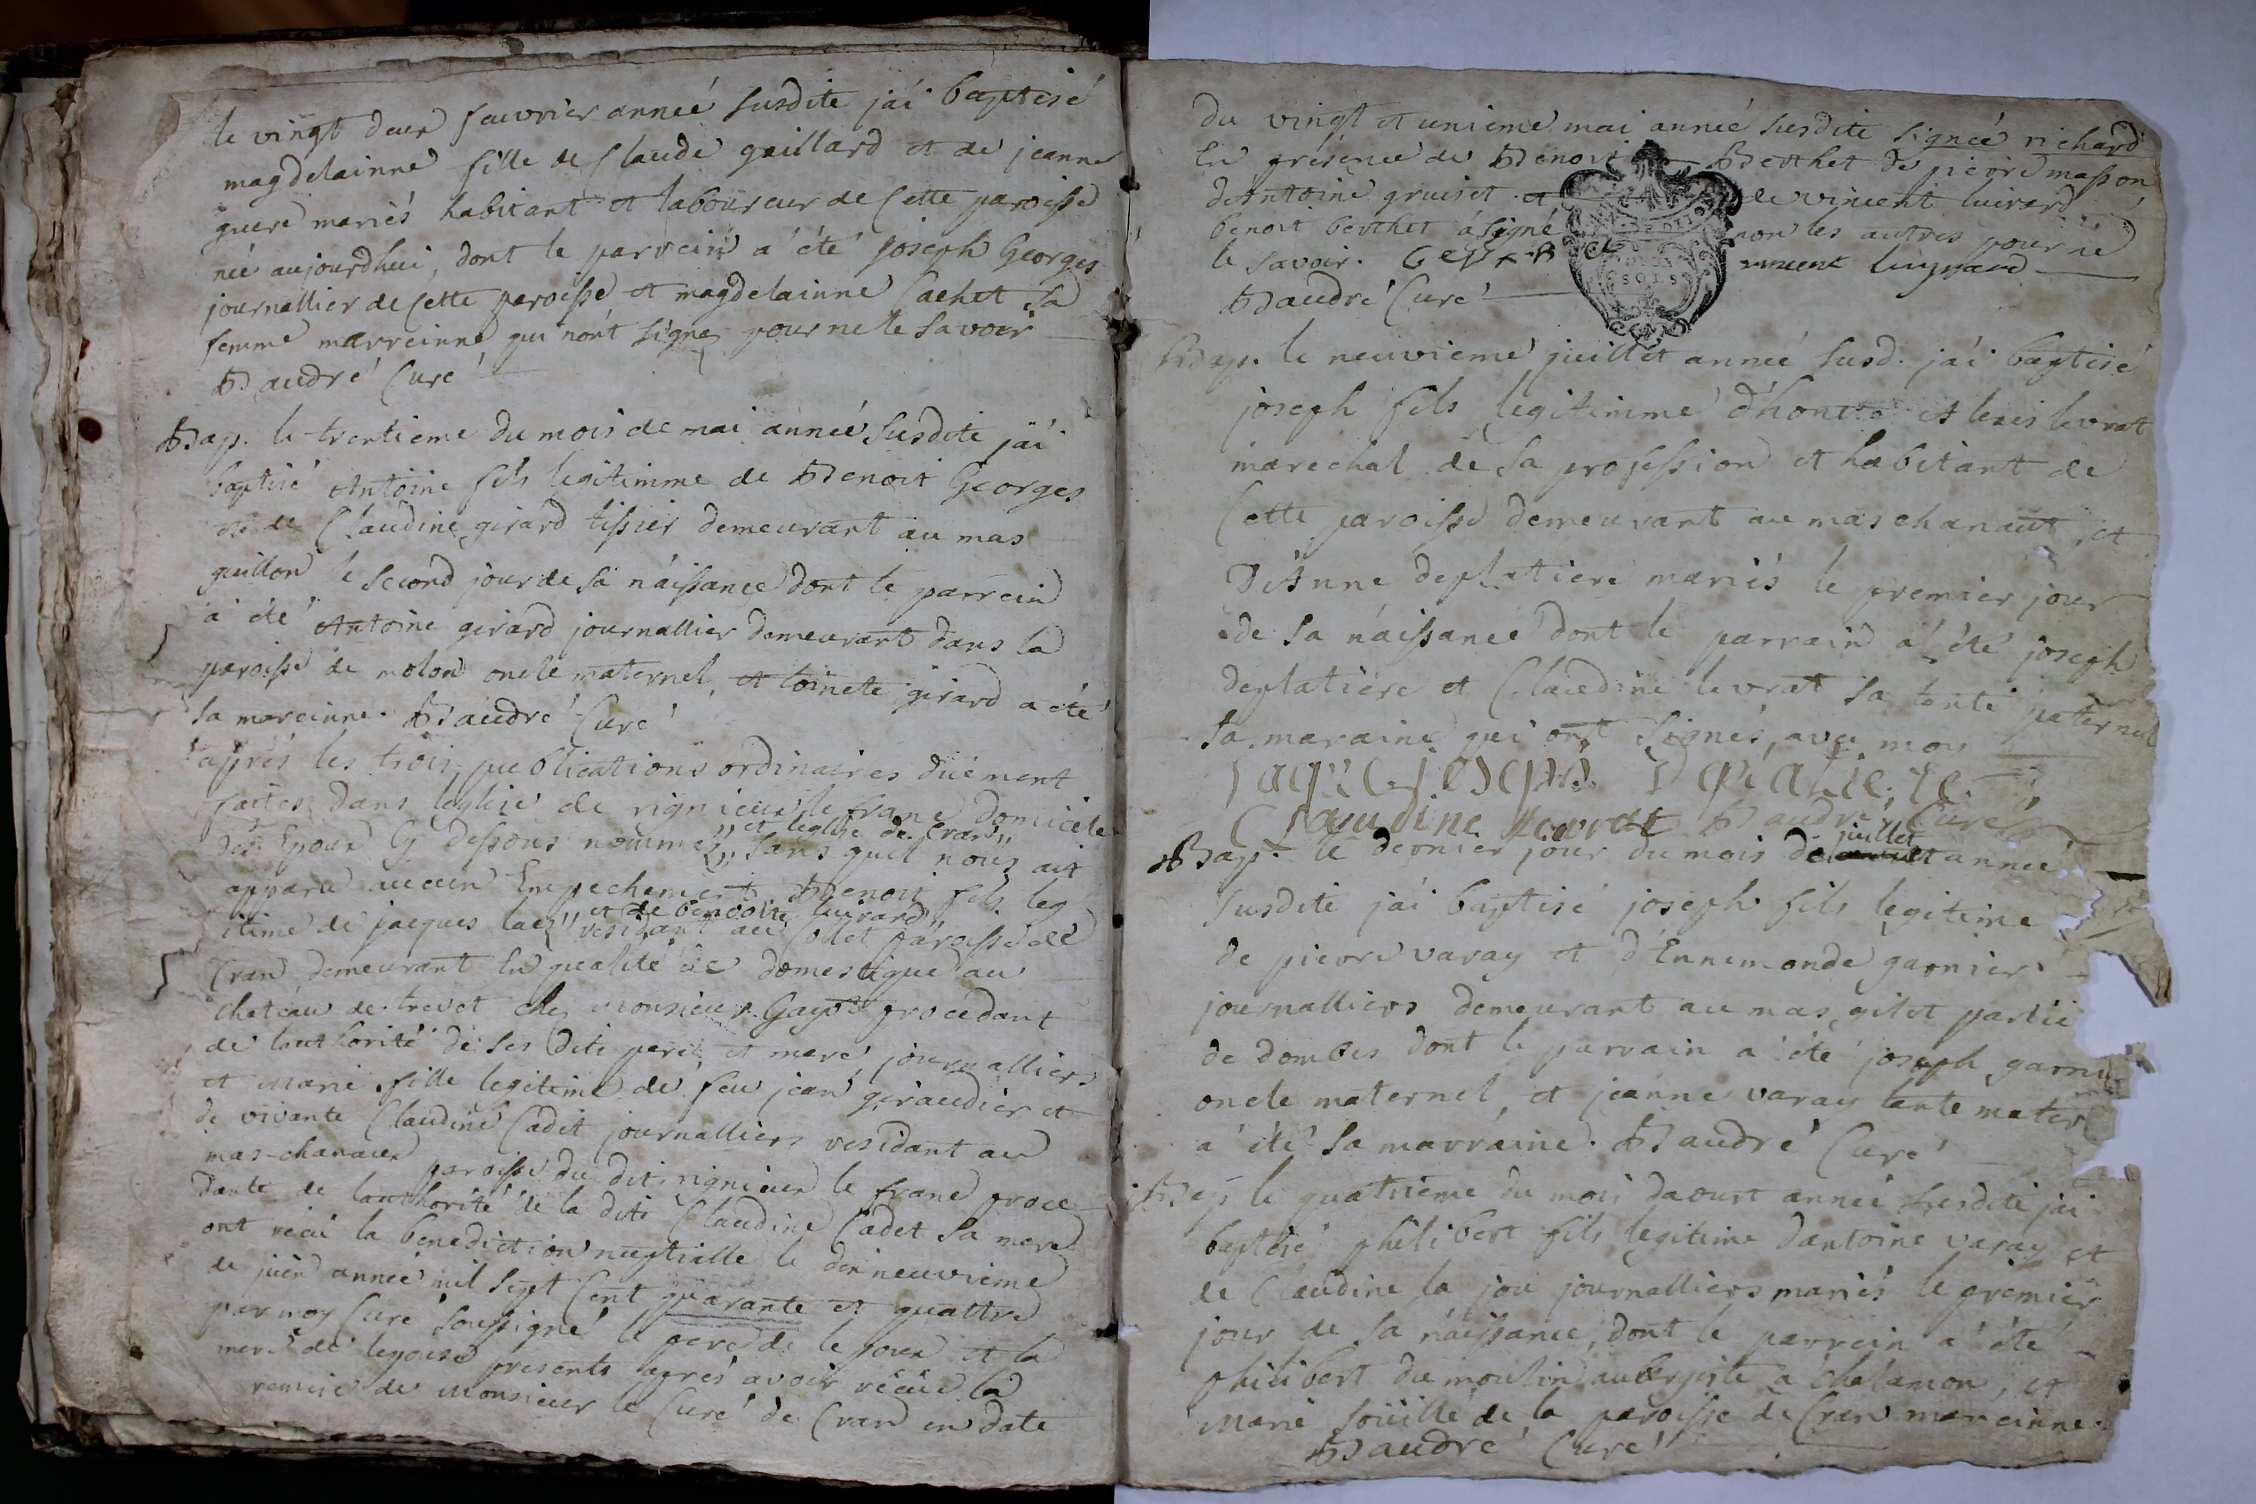 le vingt deux feuvrier anneé susdite jái baptisé
magdelainne fille de Claude gaillard et de jeanne
guere mariés habitant et laboureur de Cette paroisse
neé aujourdhui, dont le parrein a été joseph Georges
journallier de Cette paroisse et magdelainne Cachet sa
femme marreinne qui nónt signes pour ne le savoir
Baudré Curé
Bap. le trentieme du mois de mai anneé susdite jái
baptisé Antoine fils legitimme de Benoit Georges
et de Claudine girard tissier demeurant au mas
guillon le second jour de sa náissance dont le parrein
a été Antoine girard journallier demeurant dans la
paroisse de molon oncle maternel, et toinete girard a été
sa mareinne. Baudré Curé
aprés les trois publications ordinaires duement
faites dans léglise de rignieux le franc domicile
des Epoux Cy dessous nommez et léglise de Crans
sans quil nous ait
apparu aucun Empechement Benoit fils leg
itime de jacques et de benoite luirard
residant au Collet paroisse de
Cran demeurant En qualité de domestique au
chateau de trevet chez monsieur Gayot procedant
de lauthorité de ses dits pere et mere, journalliers
et marie fille legitime de feu jean giraudier et
de vivante Claudine Cadet journalliers residant au
mas-chanaux paroisse du dit rignieux le franc proce
dante de lauthorité de la dite Claudine Cadet sa mere
ont réçu la benediction nuptialle le dix neuvieme
de juin anneé mil sept Cent quarante et quattre
par moy Curé soussigné le pere de le poux et la
mere de lepouse presents aprés avoir réçüe la
remise de monsieur le Curé de Cran en date
du vingt et unieme mai anneé susdite signeé richard
En presence de Benoit Berthet de pierre masson
dAntoine gruiset et de vincent luirard
benoit berthet á signé non les autres pour ne
le savoir. vincent luynard
SOLS
Baudré Curé
Bap. le neuvieme juillet anneé susd. jái baptisé
joseph fils legitimme dhonte Alexis levrat
marechal de sa profession et habitant de
Cette paroisse demeurant au mas chanaut, et
DAnne deplatiere mariés le premier jour
de sa náissance dont le parrain a été joseph
deplatiere et Claudine levrat sa tante paternel
sa maraine qui ont signés, avec moy
Claudine levrat Baudré Curé
Bap. le dernier jour du mois de juillet anneé
susdite jái baptisé joseph fils legitime
de pierre varay et d'Ennemonde garnier
journalliers demeurant au mas gilet partie
de dombes dont le parrain a été joseph garni
oncle maternel, et jeanne varay tante mater
a été sa marraine. Baudré Curé
Bap le quatrieme du mois daoust anneé susdite jái
baptisé philibert fils legitime dantoine varay et
de Claudine la jou journalliers mariés le premier
jour de sa náissance, dont le parrein a été
philibert du moulin aubergiste a chalamon, et
marie soüille de la paroisse de Cran mareinne.
Baudré Curé